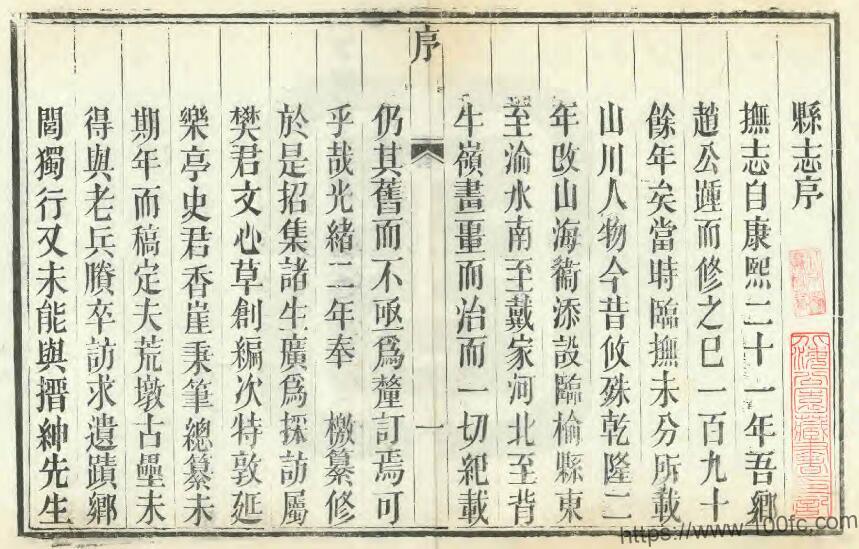 縣志序
撫志自康熙二十一年吾鄉
趙公踵而修之已一百九十
餘年矣當時臨撫未分所載
山川人物今昔攸殊乾隆二
年改山海衛添設臨榆縣東
至渝水南至戴家河北至背
牛嶺畫畺而治而一切紀載
序
一
仍其舊而不亟爲釐訂焉可
乎哉光緒二年奉 檄纂修
於是招集諸生廣爲採訪屬
樊君文心草創編次特敦延
樂亭史君香崖秉筆總纂未
期年而稿定夫荒墩古壘未
得與老兵賸卒訪求遺蹟鄉
閭獨行又未能與搢紳先生
https://www.100fc.com